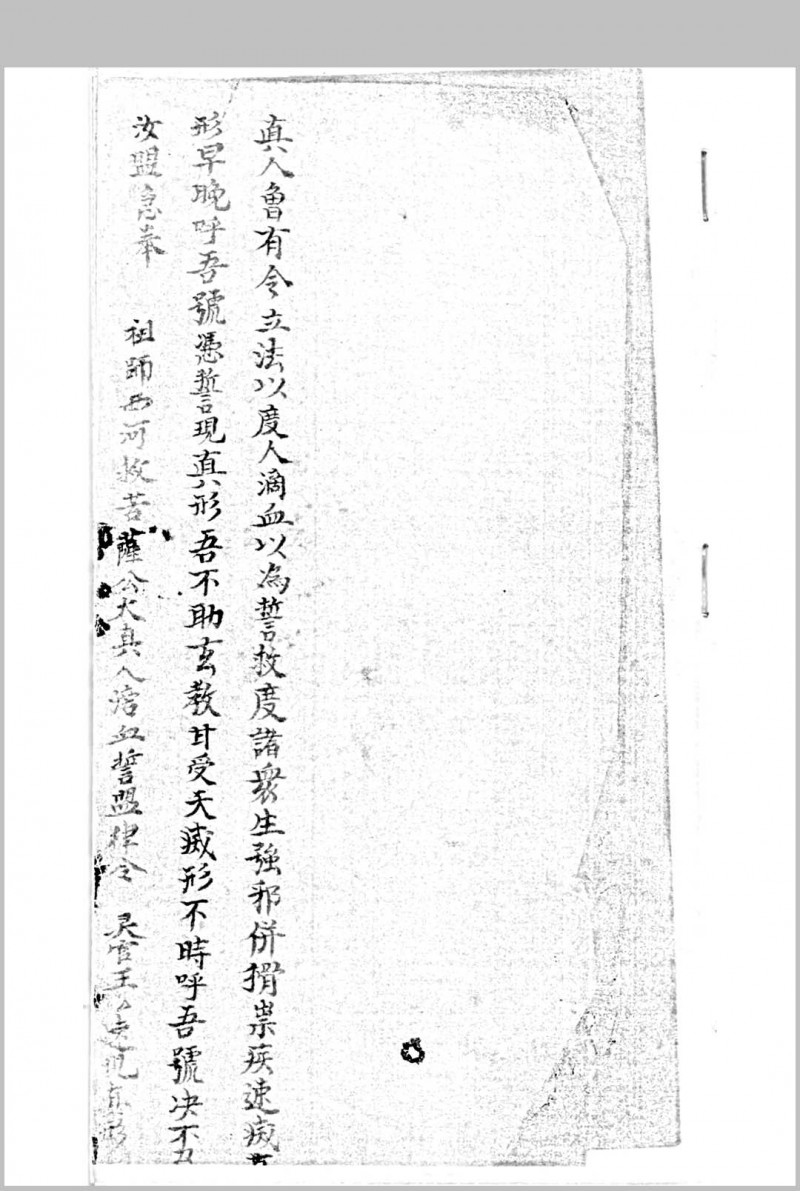 真人魯有令立法以度人滴血以為誓救度諸衆生強邪併猾祟疾速滅
形早晚呼吾號憑誓現真形吾不助玄教甘受天滅形不時呼吾號决不
汝盟急奉 祖師西河救苦薩公大真人滴血誓盟律令 灵官王公速現真形